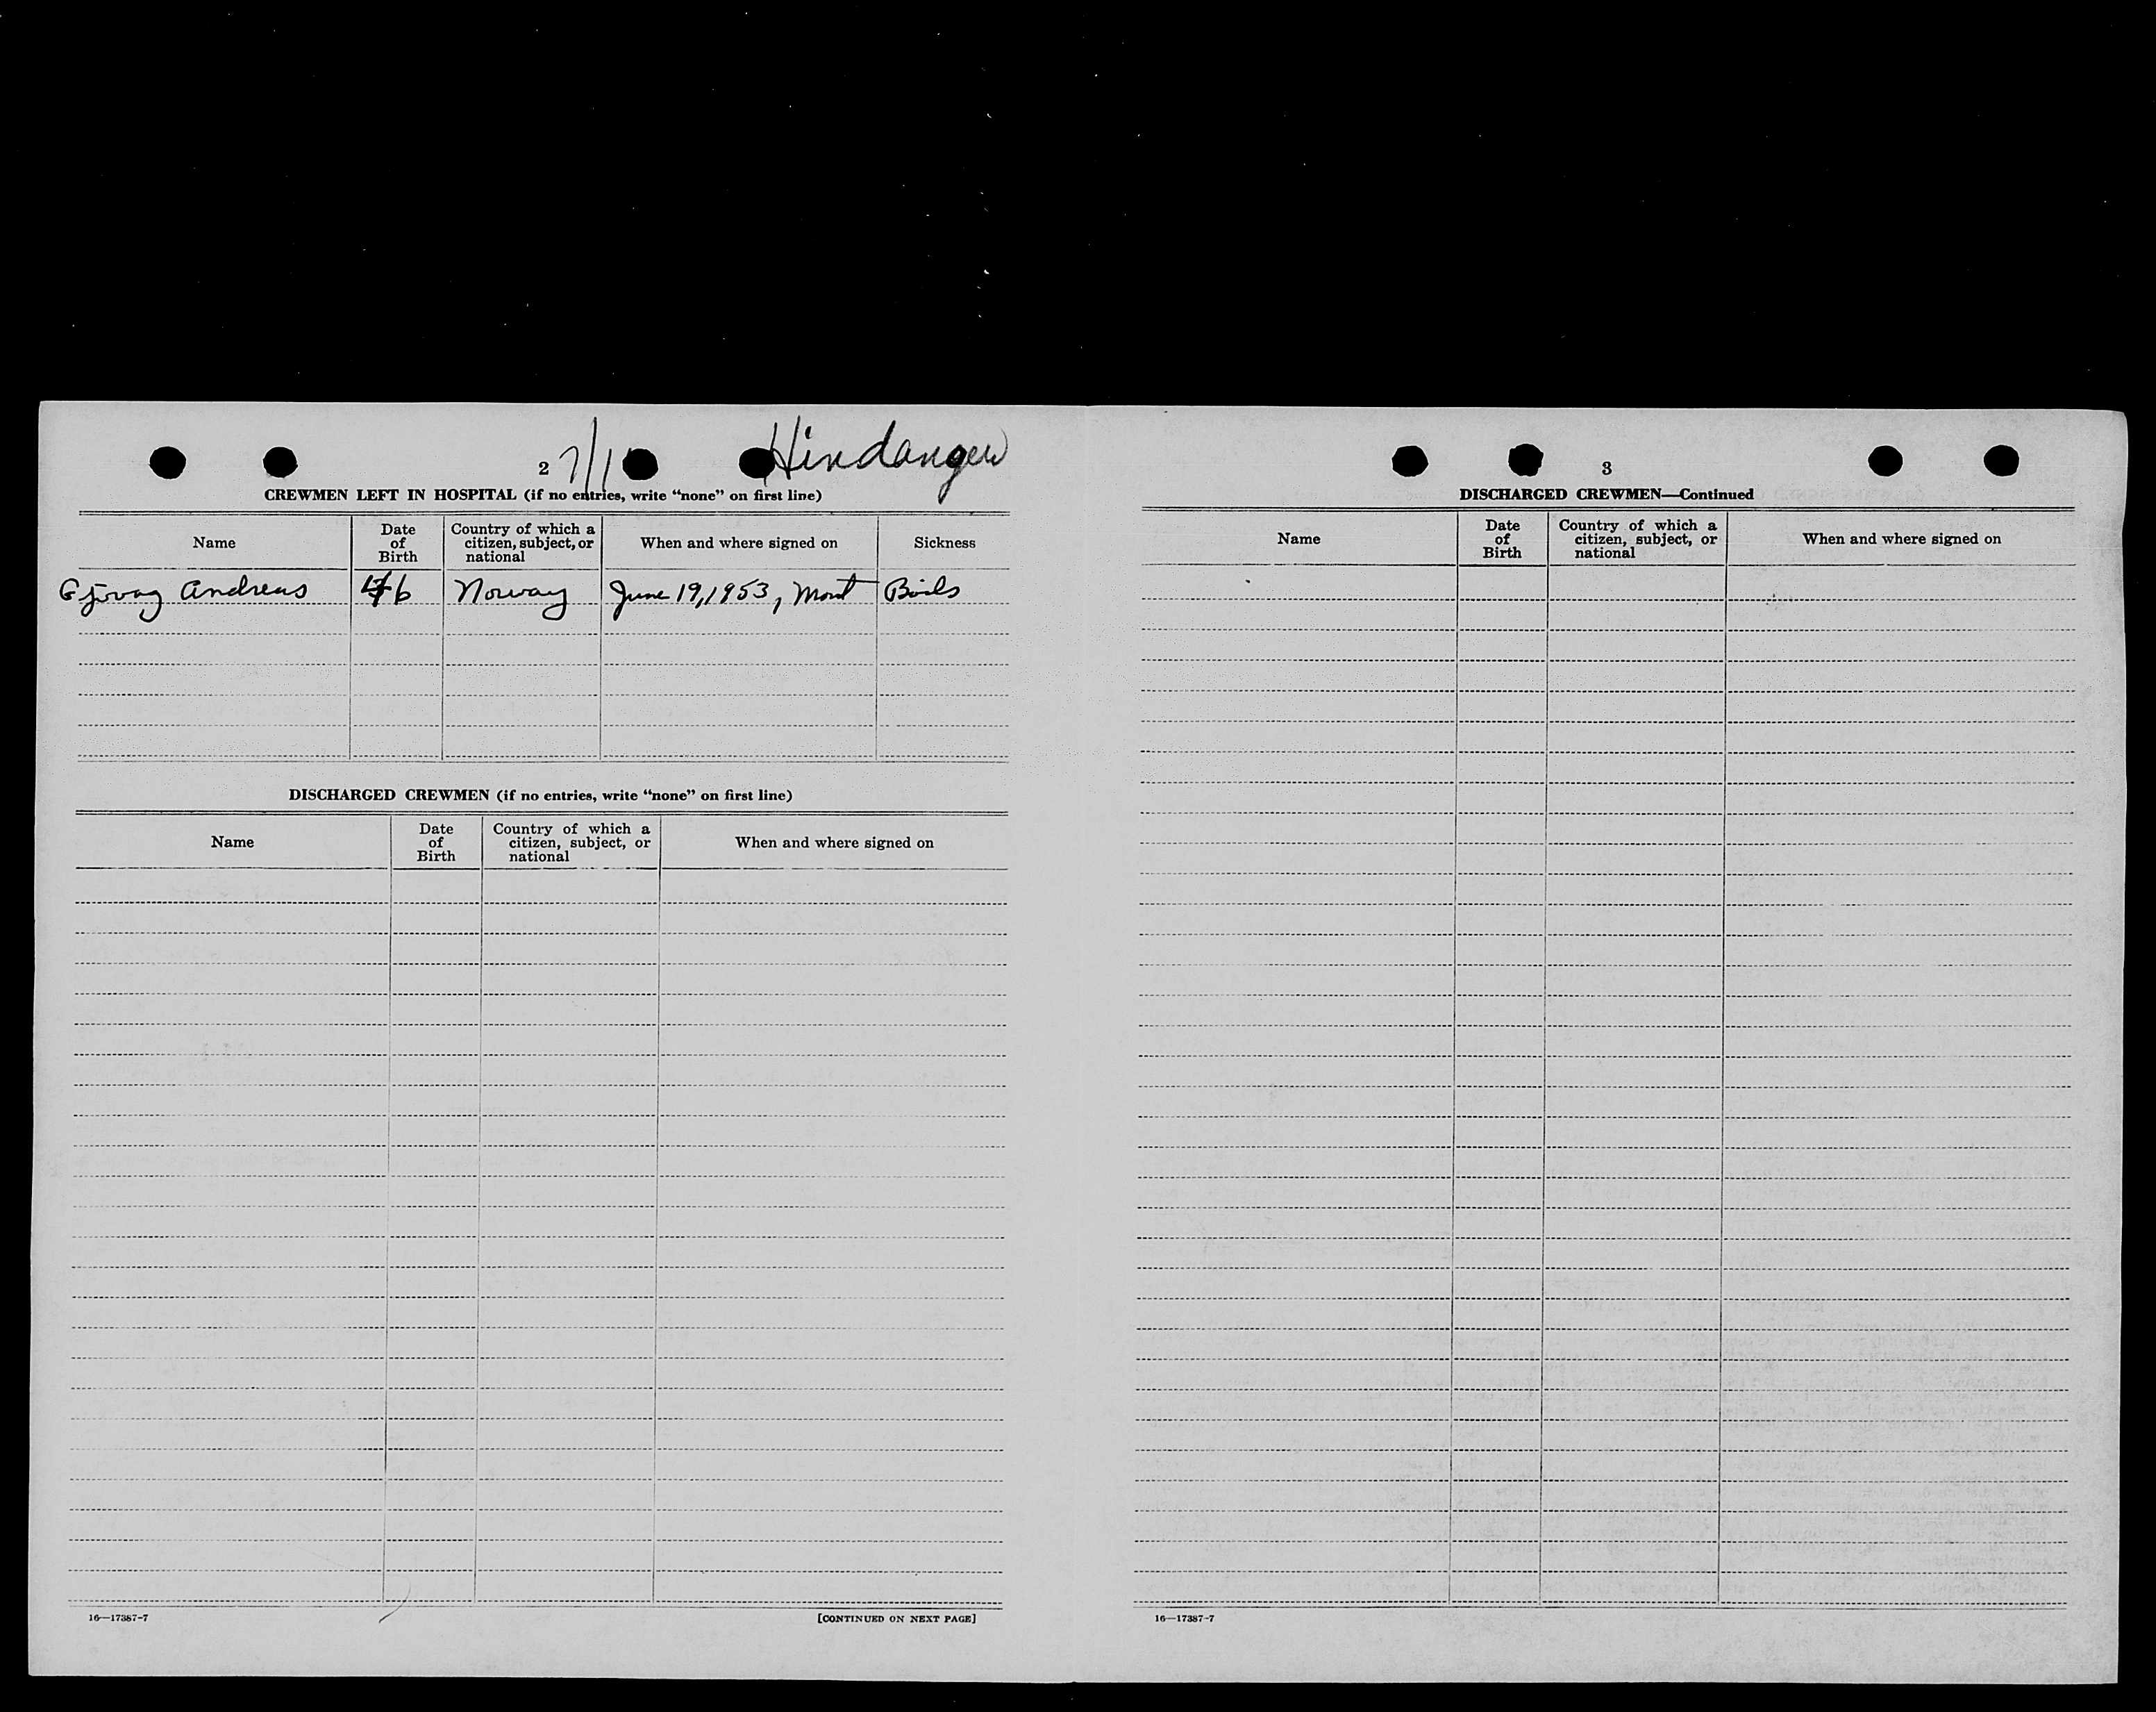 2
Hindanger
CREWMEN LEFT IN HOSPITAL (if no entries, write “none” on first line)
Name
Date of Birth
Country of which a citizen, subject, or national
When and where signed on
Sickness
Andreas
Norway
June 19, 1953, Mont
Boils
DISCHARGED CREWMEN (if no entries, write “none” on first line)
Name
Date of Birth
Country of which a citizen, subject, or national
When and where signed on
16—17387-7
[CONTINUED ON NEXT PAGE]
3
DISCHARGED CREWMEN—Continued
Name
Date of Birth
Country of which a citizen, subject, or national
When and where signed on
16—17387-7